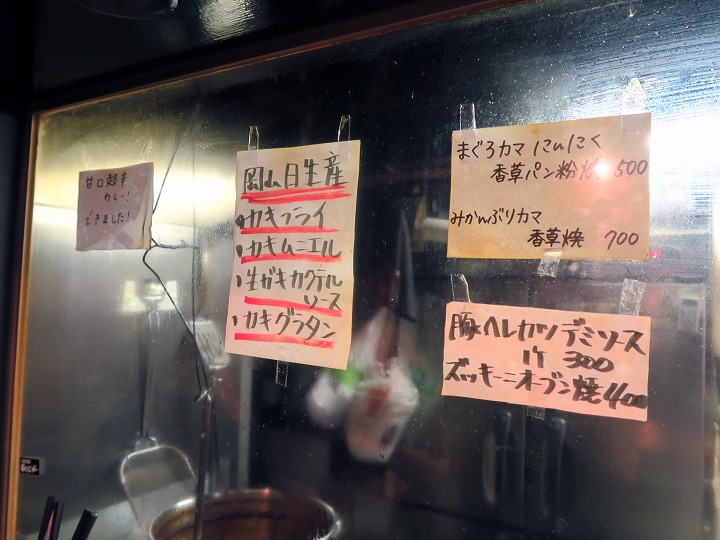 甘口超辛
カレー!
できました!
岡山日生産
・カキフライ
・カキムニエル
・生ガキカクテル
ソース
・カキグラタン
まぐろカマ にんにく
香草パン粉焼 500
みかんぶりカマ
香草焼 700
豚ヘレカツデミソース
1ケ 300
ズッキーニオーブン焼 400